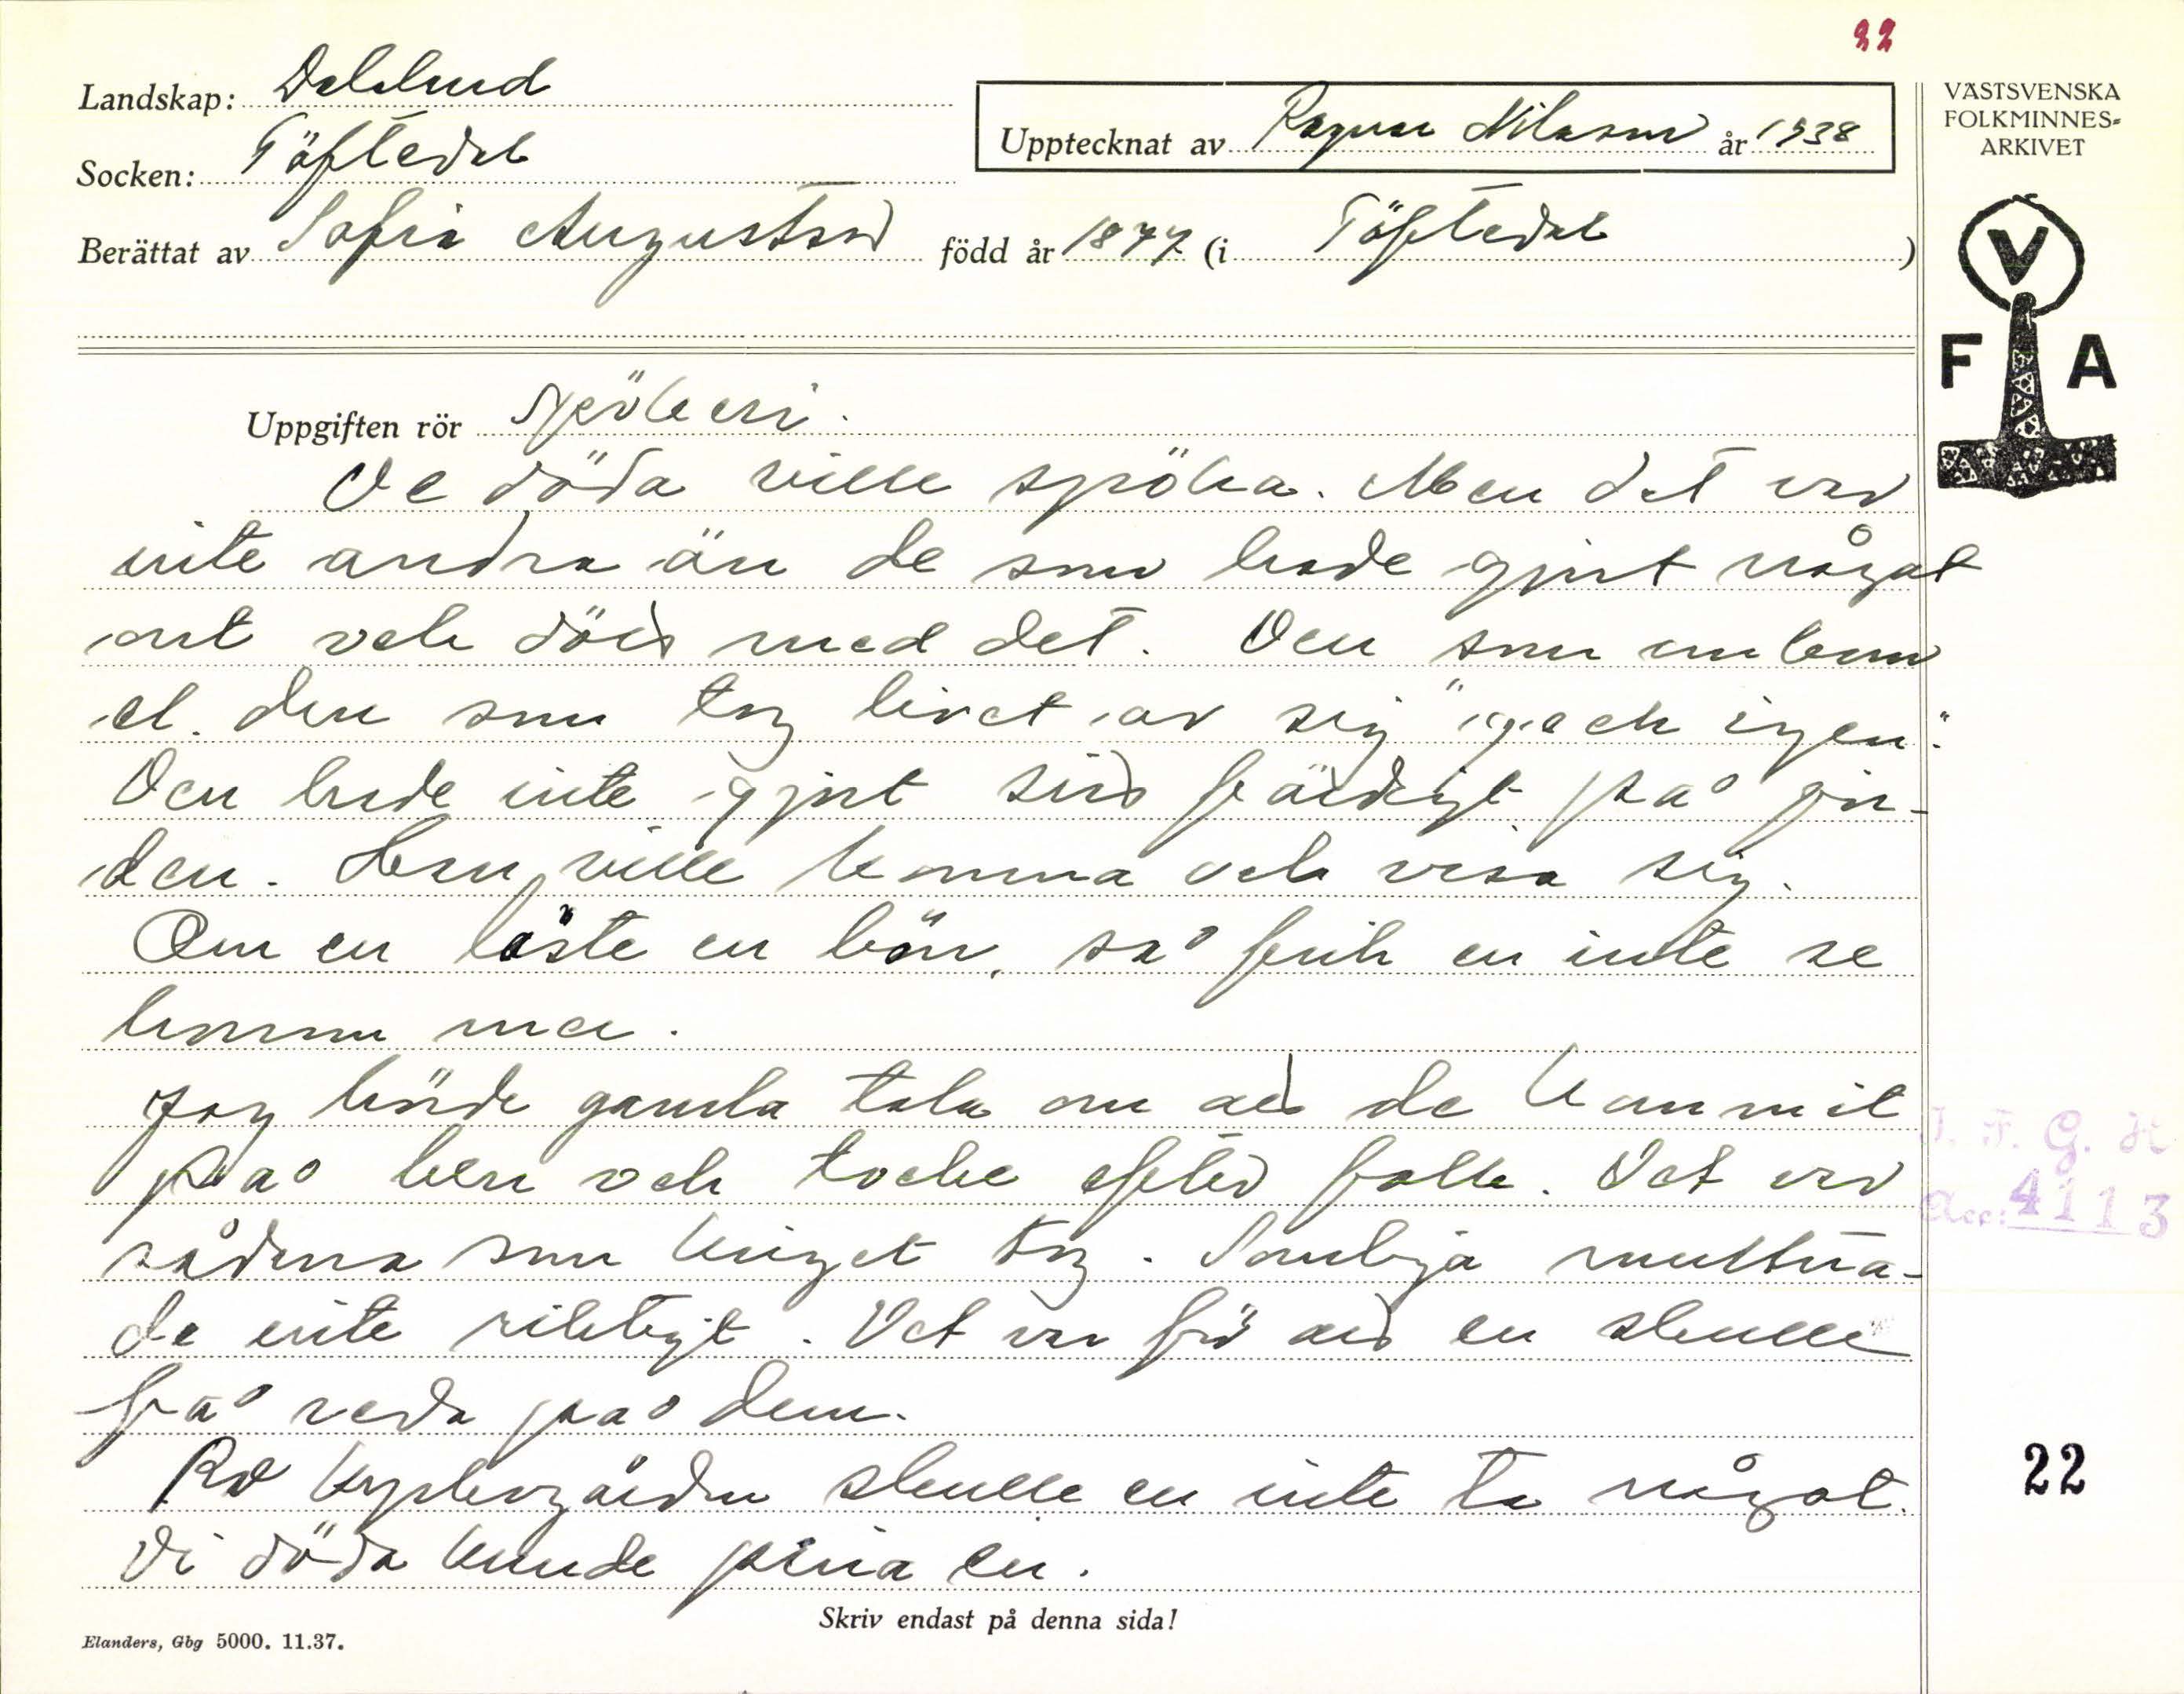 22
Landskap: Dalsland
Socken: Töftedal
Upptecknat av Ragnar Nilsson år 1938
Berättat av Sofia Augustsson född år 1877 (i Töftedal)
VÄSTSVENSKA
FOLKMINNES-
ARKIVET
V
F A
Uppgiften rör Spökeri.
De döda ville spöka. Men det var
inte andra än de som hade gjort något
ont och döds med det. Den som
el. den som tog livet av sig "geck igen".
Den hade inte gjort sitt färdigt på jor-
den. Han ville komma och visa sig.
Om en läste en bön, så feck en inte se
honom mer.
Jag hörde gamla tala om att de kommit
på ben och tocke efter folk. Det var
sådana som kriget tog. Somliga multna-
de inte riktigt. Det var för att en skulle
få reda på dem.
På kyrkogården skulle en inte ta något.
Di döda kunde pina en.
I. F. G. H.
Acc: 4113
22
Skriv endast på denna sida!
Elanders, Gbg 5000. 11.37.